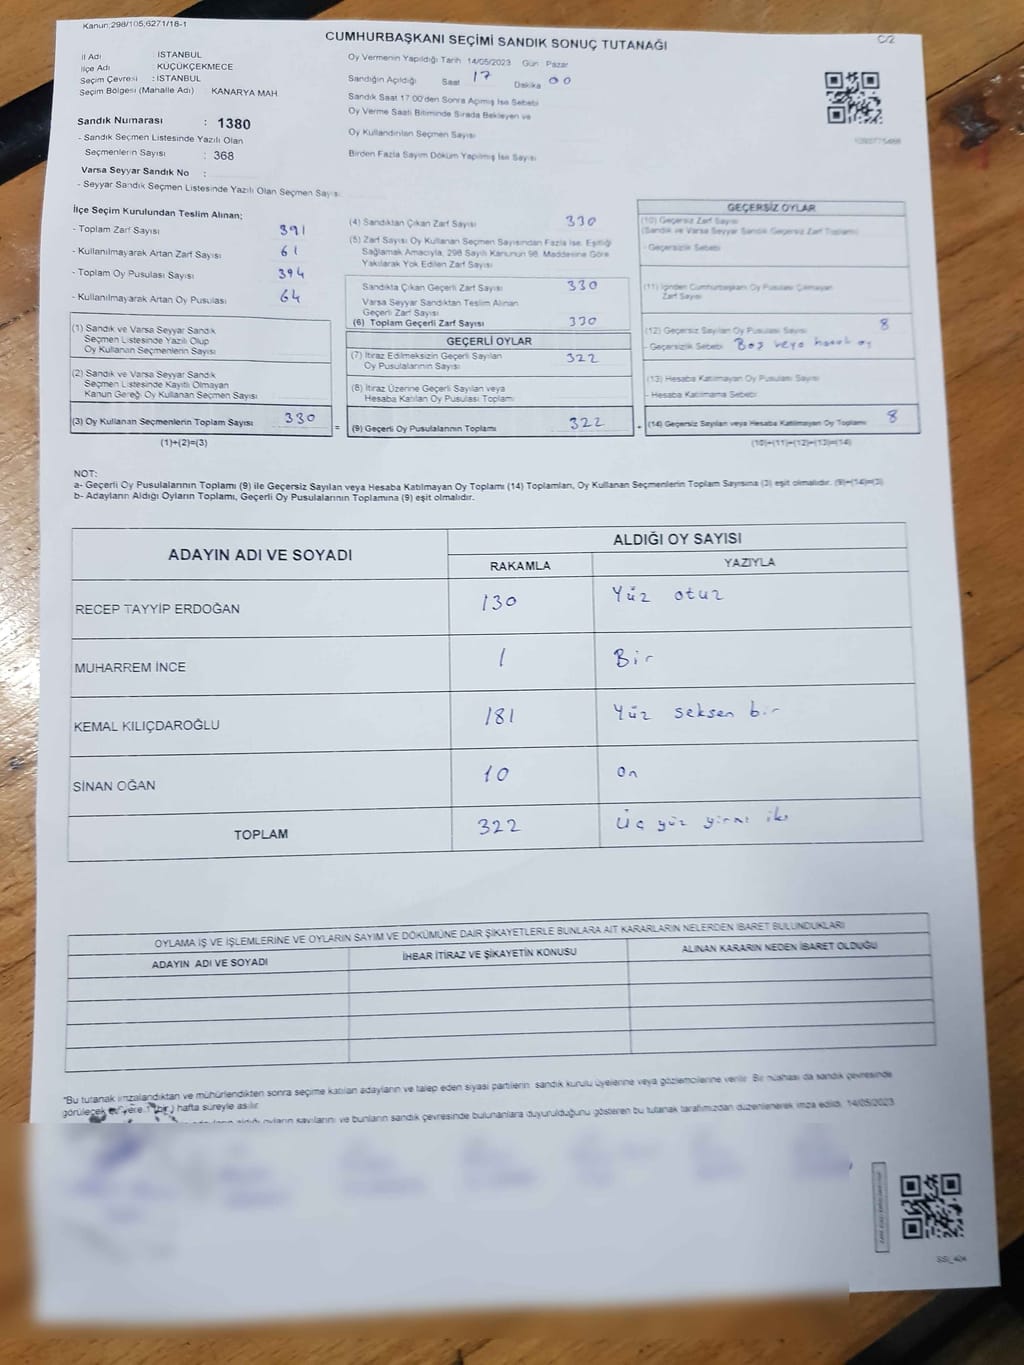 Kanun:298/105,6271/18-1
CUMHURBAŞKANI SEÇİMİ SANDIK SONUÇ TUTANAĞI
C/2
İl Adı : İSTANBUL
İlçe Adı : KÜÇÜKÇEKMECE
Seçim Çevresi : İSTANBUL
Seçim Bölgesi (Mahalle Adı) : KANARYA MAH.
Sandık Numarası : 1380
- Sandık Seçmen Listesinde Yazılı Olan
Seçmenlerin Sayısı : 368
Varsa Seyyar Sandık No :
- Seyyar Sandık Seçmen Listesinde Yazılı Olan Seçmen Sayısı
Oy Vermenin Yapıldığı Tarih 14/05/2023 Gün Pazar
Sandığın Açıldığı Saat 17 Dakika 00
Sandık Saat 17:00'den Sonra Açılmış İse Sebebi
Oy Verme Saati Bitiminde Sırada Bekleyen ve
Oy Kullandırılan Seçmen Sayısı
Birden Fazla Sayım Döküm Yapılmış İse Sayısı
İlçe Seçim Kurulundan Teslim Alınan;
- Toplam Zarf Sayısı 391
- Kullanılmayarak Artan Zarf Sayısı 61
- Toplam Oy Pusulası Sayısı 394
- Kullanılmayarak Artan Oy Pusulası 64
(1) Sandık ve Varsa Seyyar Sandık
Seçmen Listesinde Yazılı Olup
Oy Kullanan Seçmenlerin Sayısı
(2) Sandık ve Varsa Seyyar Sandık
Seçmen Listesinde Kayıtlı Olmayan
Kanun Gereği Oy Kullanan Seçmen Sayısı
(3) Oy Kullanan Seçmenlerin Toplam Sayısı 330
(1)+(2)=(3)
=
(4) Sandıktan Çıkan Zarf Sayısı 330
(5) Zarf Sayısı Oy Kullanan Seçmen Sayısından Fazla İse, Eşitliği
Sağlamak Amacıyla, 298 Sayılı Kanunun 98. Maddesine Göre
Yakılarak Yok Edilen Zarf Sayısı
Sandıkta Çıkan Geçerli Zarf Sayısı 330
Varsa Seyyar Sandıktan Teslim Alınan
Geçerli Zarf Sayısı
(6) Toplam Geçerli Zarf Sayısı 330
GEÇERLİ OYLAR
(7) İtiraz Edilmeksizin Geçerli Sayılan
Oy Pusulalarının Sayısı 322
(8) İtiraz Üzerine Geçerli Sayılan veya
Hesaba Katılan Oy Pusulası Toplamı
(9) Geçerli Oy Pusulalarının Toplamı 322
+
GEÇERSİZ OYLAR
(10) Geçersiz Zarf Sayısı
(Sandık ve Varsa Seyyar Sandık Geçersiz Zarf Toplamı)
- Geçersizlik Sebebi
(11) İçinden Cumhurbaşkanı Oy Pusulası Çıkmayan
Zarf Sayısı
(12) Geçersiz Sayılan Oy Pusulası Sayısı 8
- Geçersizlik Sebebi Boş veya hatalı oy
(13) Hesaba Katılmayan Oy Pusulası Sayısı
- Hesaba Katılmama Sebebi
(14) Geçersiz Sayılan veya Hesaba Katılmayan Oy Toplamı 8
(10)+(11)+(12)+(13)=(14)
NOT:
a- Geçerli Oy Pusulalarının Toplamı (9) ile Geçersiz Sayılan veya Hesaba Katılmayan Oy Toplamı (14) Toplamları, Oy Kullanan Seçmenlerin Toplam Sayısına (3) eşit olmalıdır. (9)+(14)=(3)
b- Adayların Aldığı Oyların Toplamı, Geçerli Oy Pusulalarının Toplamına (9) eşit olmalıdır.
ADAYIN ADI VE SOYADI
ALDIĞI OY SAYISI
RAKAMLA YAZIYLA
RECEP TAYYİP ERDOĞAN 130 Yüz otuz
MUHARREM İNCE 1 Bir
KEMAL KILIÇDAROĞLU 181 Yüz seksen bir
SİNAN OĞAN 10 On
TOPLAM 322 Üç yüz yirmi iki
OYLAMA İŞ VE İŞLEMLERİNE VE OYLARIN SAYIM VE DÖKÜMÜNE DAİR ŞİKAYETLERLE BUNLARA AİT KARARLARIN NELERDEN İBARET BULUNDUKLARI
ADAYIN ADI VE SOYADI İHBAR İTİRAZ VE ŞİKAYETİN KONUSU ALINAN KARARIN NEDEN İBARET OLDUĞU
*Bu tutanak imzalandıktan ve mühürlendikten sonra seçime katılan adayların ve talep eden siyasi partilerin sandık kurulu üyelerine veya gözlemcilerine verilir. Bir nüshası da sandık çevresinde
görülecek bir yere 1 (bir) hafta süreyle asılır.
aldığı oyların sayılarını ve bunların sandık çevresinde bulunanlara duyurulduğunu gösteren bu tutanak tarafımızdan düzenlenerek imza edildi. 14/05/2023